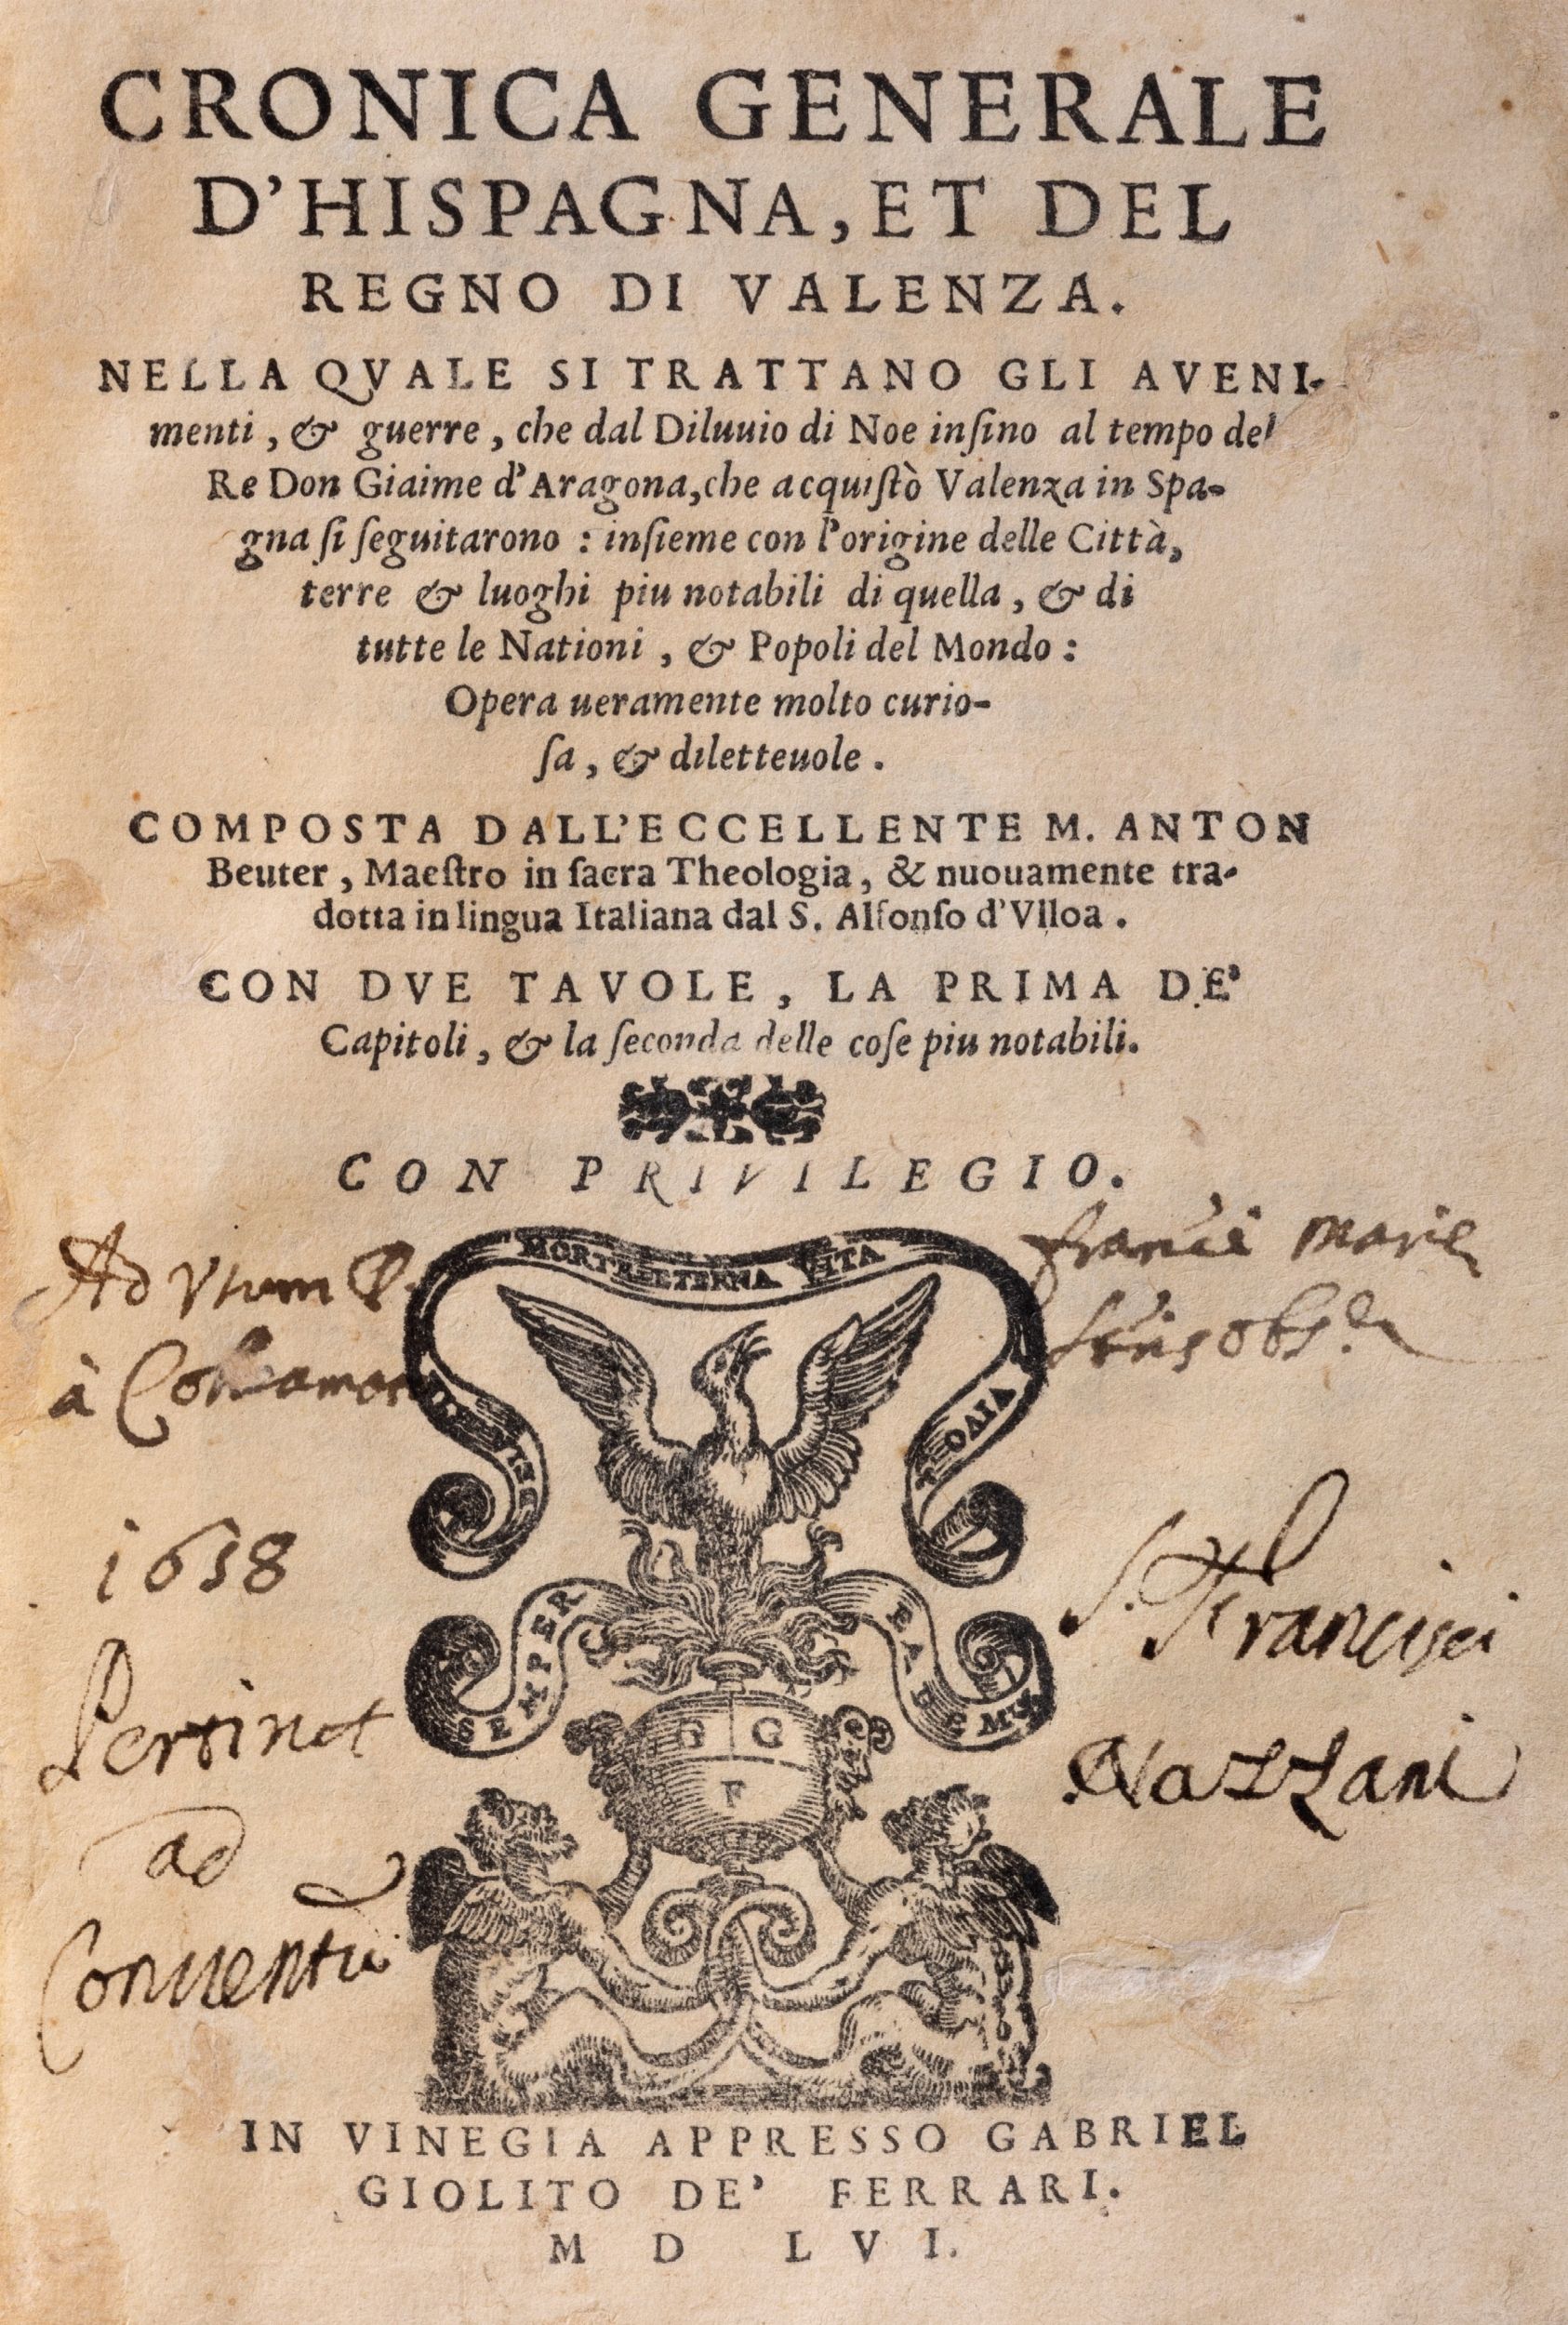 CRONICA GENERALE
D'HISPAGNA, ET DEL
REGNO DI VALENZA.
NELLA QVALE SI TRATTANO GLI AVENI-
menti, & guerre, che dal Diluuio di Noe inſino al tempo del
Re Don Giaime d'Aragona, che acquiſtò Valenza in Spa-
gna ſi ſeguitarono : inſieme con l'origine delle Città,
terre & luoghi piu notabili di quella, & di
tutte le Nationi, & Popoli del Mondo :
Opera ueramente molto curio-
ſa, & diletteuole.
COMPOSTA DALL'ECCELLENTE M. ANTON
Beuter, Maeſtro in ſacra Theologia, & nuouamente tra-
dotta in lingua Italiana dal S. Alfonſo d'Vlloa.
CON DVE TAVOLE, LA PRIMA DE'
Capitoli, & la ſeconda delle coſe piu notabili.
CON PRIVILEGIO.
Ad Vsum P. marie
à
MORTE ETERNA VITA
VIVO
1658
S. Francisci
SEMPER EADEM
G G
F
Pertinet
Nazzani
ad
Conuentū
IN VINEGIA APPRESSO GABRIEL
GIOLITO DE' FERRARI.
M D LVI.